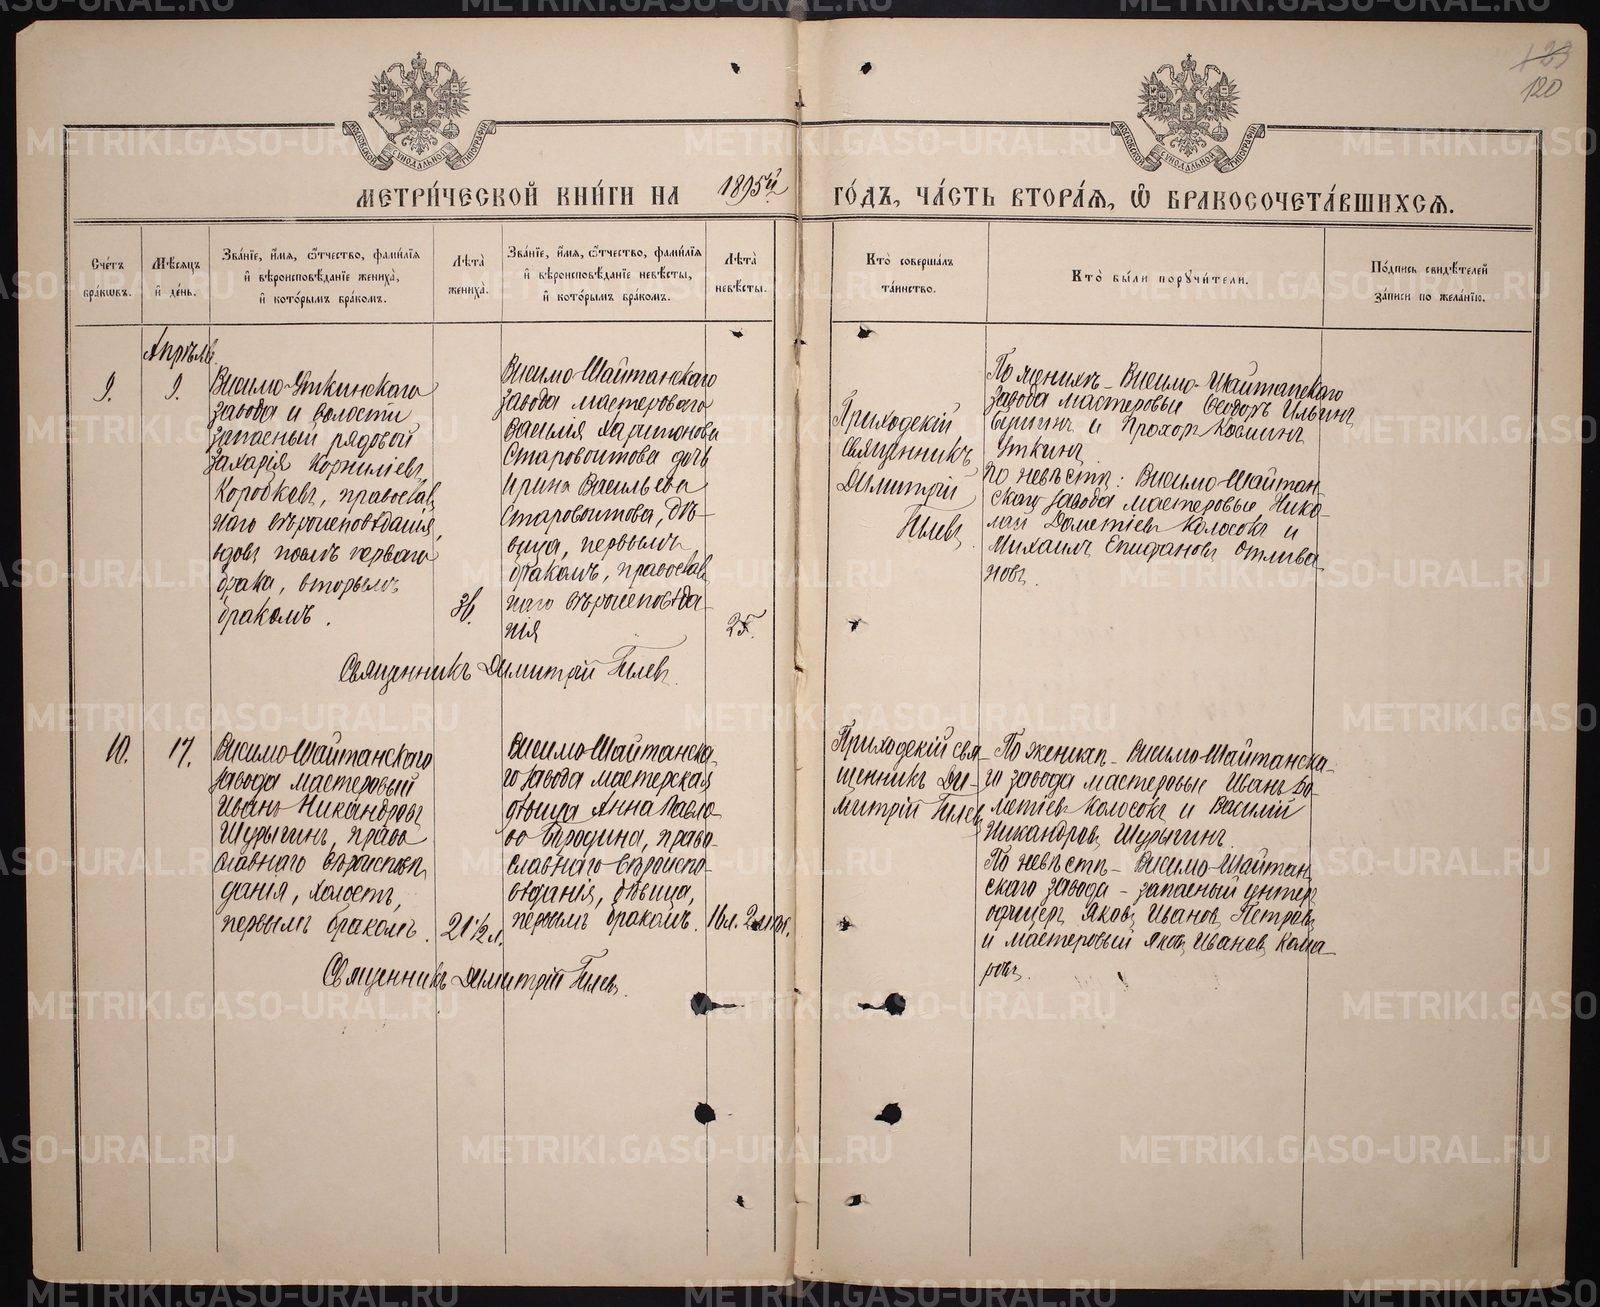 123
120
МЕТРИ́ЧЕСКОЙ КНИ́ГИ НА 1895й ГО́ДЪ, ЧА́СТЬ ВТОРА́Я, Ѽ БРАКОСОЧЕТА́ВШИХСЯ.
Сче́тъ бра́кѡвъ.
Мѣ́сяцъ и де́нь.
Зва́нїе, и́мя, ѻ́тчество, фами́лїя и вѣроисповѣ́данїе жениха̀, и кото́рымъ бра́комъ.
Лѣта̀ жениха̀.
Зва́нїе, и́мя, ѻ́тчество, фами́лїя и вѣроисповѣ́данїе невѣ́сты, и кото́рымъ бра́комъ.
Лѣта̀ невѣ́сты.
Кто̀ соверша́лъ та́инство.
Кто̀ бы́ли порꙋчи́тели.
По́дпись свидѣ́телей за́писи по жела́нїю.
Апрѣля
9.
9.
Висимо-Уткинскаго
завода и волости
запасный рядовой
Захарія Корниліевъ
Коробковъ, православ
наго вѣроисповѣданія,
вдовъ послѣ перваго
брака, вторымъ
бракомъ.
Висимо-Шайтанскаго
завода мастероваго
Василія Харитонова
Старовоитова дочь
Ирина Васильева
Старовоитова, дѣ-
вица, первымъ
бракомъ, православ
наго вѣроисповѣда-
нія
Приходскій
Священникъ
Димитрій
По женихѣ - Висимо-Шайтанскаго
завода мастеровые Ѳеодоръ Ильинъ
и Прохоръ Косминъ
Уткинъ
По невѣстѣ: Висимо-Шайтан-
скаго завода мастеровые Нико-
лай Дометіевъ Колосокъ и
Михаилъ Епифановъ Отлива
новъ.
Священникъ Димитрій
10.
17.
Висимо-Шайтанскаго
завода мастеровый
Иванъ Никандровъ
Шурыгинъ, право
славнаго вѣроисповѣ
данія, холостъ,
первымъ бракомъ.
21 1/2 л.
Висимо-Шайтанска-
го завода мастерская
дѣвица Анна Павло-
ва Бородина, право-
славнаго вѣроиспо-
вѣданія, дѣвица,
первымъ бракомъ.
16 л.
Приходскій свя-
щенникъ Ди-
митрій
По женихѣ - Висимо-Шайтанска-
го завода мастеровые Иванъ До-
метіевъ Колосокъ и Василій
Никандровъ Шурыгинъ.
По невѣстѣ - Висимо-Шайтан
скаго завода - запасный унтеръ
офицеръ Яковъ Ивановъ Петровъ
и мастеровый Яковъ Ивановъ Кома-
ровъ.
Священникъ Димитрій
METRIKI.GASO-URAL.RU